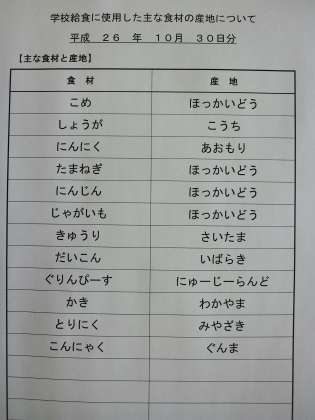 学校給食に使用した主な食材の産地について
平成 26 年 10月 30日分
【主な食材と産地】
食 材 産 地
こめ ほっかいどう
しょうが こうち
にんにく あおもり
たまねぎ ほっかいどう
にんじん ほっかいどう
じゃがいも ほっかいどう
きゅうり さいたま
だいこん いばらき
ぐりんぴーす にゅーじーらんど
かき わかやま
とりにく みやざき
こんにゃく ぐんま